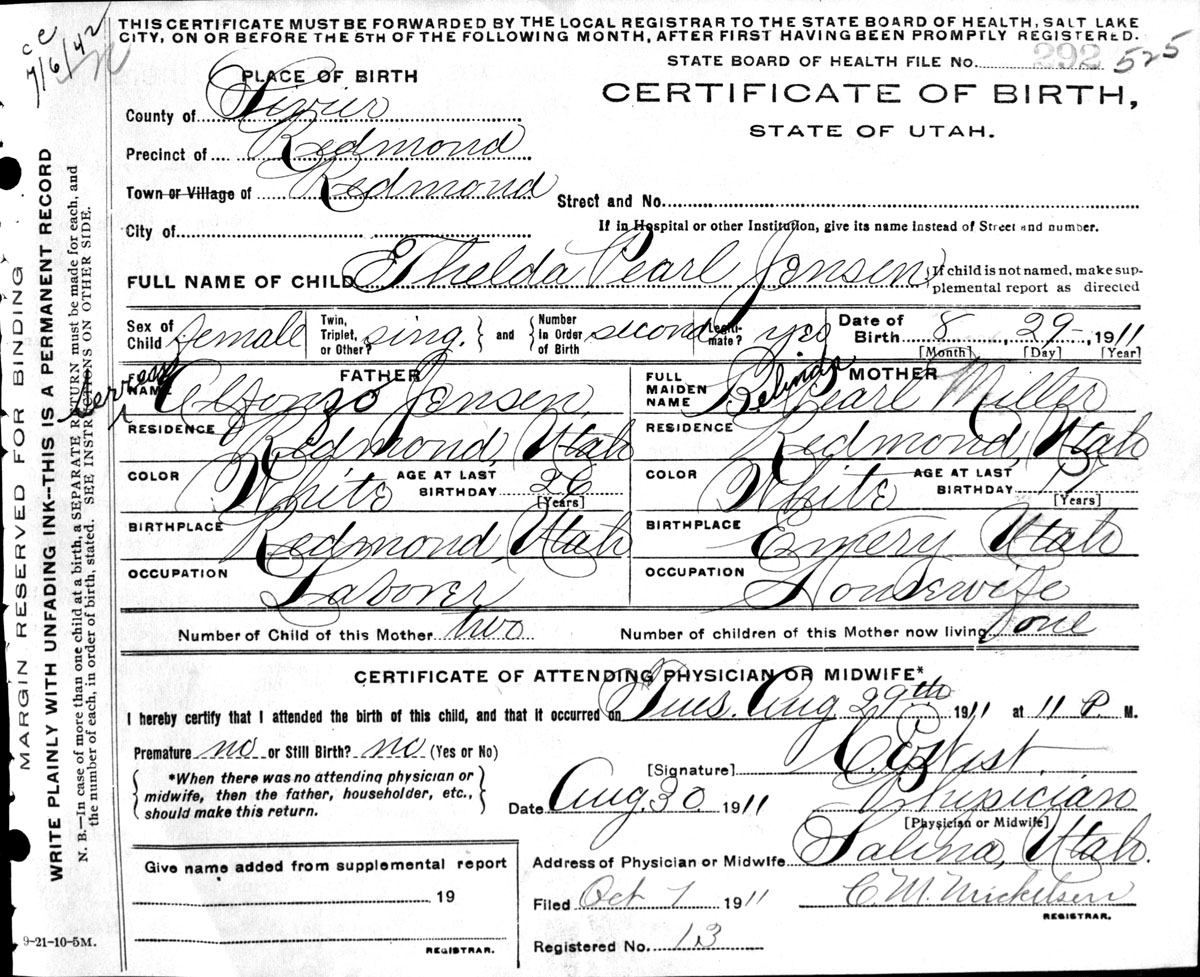 THIS CERTIFICATE MUST BE FORWARDED BY THE LOCAL REGISTRAR TO THE STATE BOARD OF HEALTH, SALT LAKE
CITY, ON OR BEFORE THE 5TH OF THE FOLLOWING MONTH, AFTER FIRST HAVING BEEN PROMPTLY REGISTERED.
ce
7/6/42
STATE BOARD OF HEALTH FILE No. 292 525
PLACE OF BIRTH
CERTIFICATE OF BIRTH,
STATE OF UTAH.
County of Sivier
Precinct of Redmond
Town or Village of Redmond
Street and No.
City of
If in Hospital or other Institution, give its name instead of Street and number.
FULL NAME OF CHILD Thelda Pearl Jensen {If child is not named, make sup-
plemental report as directed
Sex of Child female Twin, Triplet, or Other? sing. } and { Number in Order of Birth second Legiti-mate? yes Date of Birth 8 29- 1911
[Month] [Day] [Year]
FATHER
FULL NAME Alfonzo Jensen
RESIDENCE Redmond, Utah
COLOR White AGE AT LAST BIRTHDAY 26 [Years]
BIRTHPLACE Redmond, Utah
OCCUPATION Laborer
MOTHER
FULL MAIDEN NAME Belinda Pearl Miller
RESIDENCE Redmond, Utah
COLOR White AGE AT LAST BIRTHDAY [Years]
BIRTHPLACE Emery Utah
OCCUPATION Housewife
Number of Child of this Mother two Number of children of this Mother now living one
CERTIFICATE OF ATTENDING PHYSICIAN OR MIDWIFE*
I hereby certify that I attended the birth of this child, and that it occurred on Tues. Aug 29th 1911 at 11 P. M.
Premature no or Still Birth? no (Yes or No)
{ *When there was no attending physician or
midwife, then the father, householder, etc.,
should make this return. }
[Signature] West.
Date Aug 30 1911 Physician
[Physician or Midwife]
Give name added from supplemental report
19
REGISTRAR.
Address of Physician or Midwife Salina, Utah.
Filed Oct 1 1911 C M. Mickelsen
REGISTRAR.
Registered No. 13
9-21-10-5M.
MARGIN RESERVED FOR BINDING
WRITE PLAINLY WITH UNFADING INK--THIS IS A PERMANENT RECORD
N. B.—In case of more than one child at a birth, a SEPARATE RETURN must be made for each, and
the number of each, in order of birth, stated. SEE INSTRUCTIONS ON OTHER SIDE.